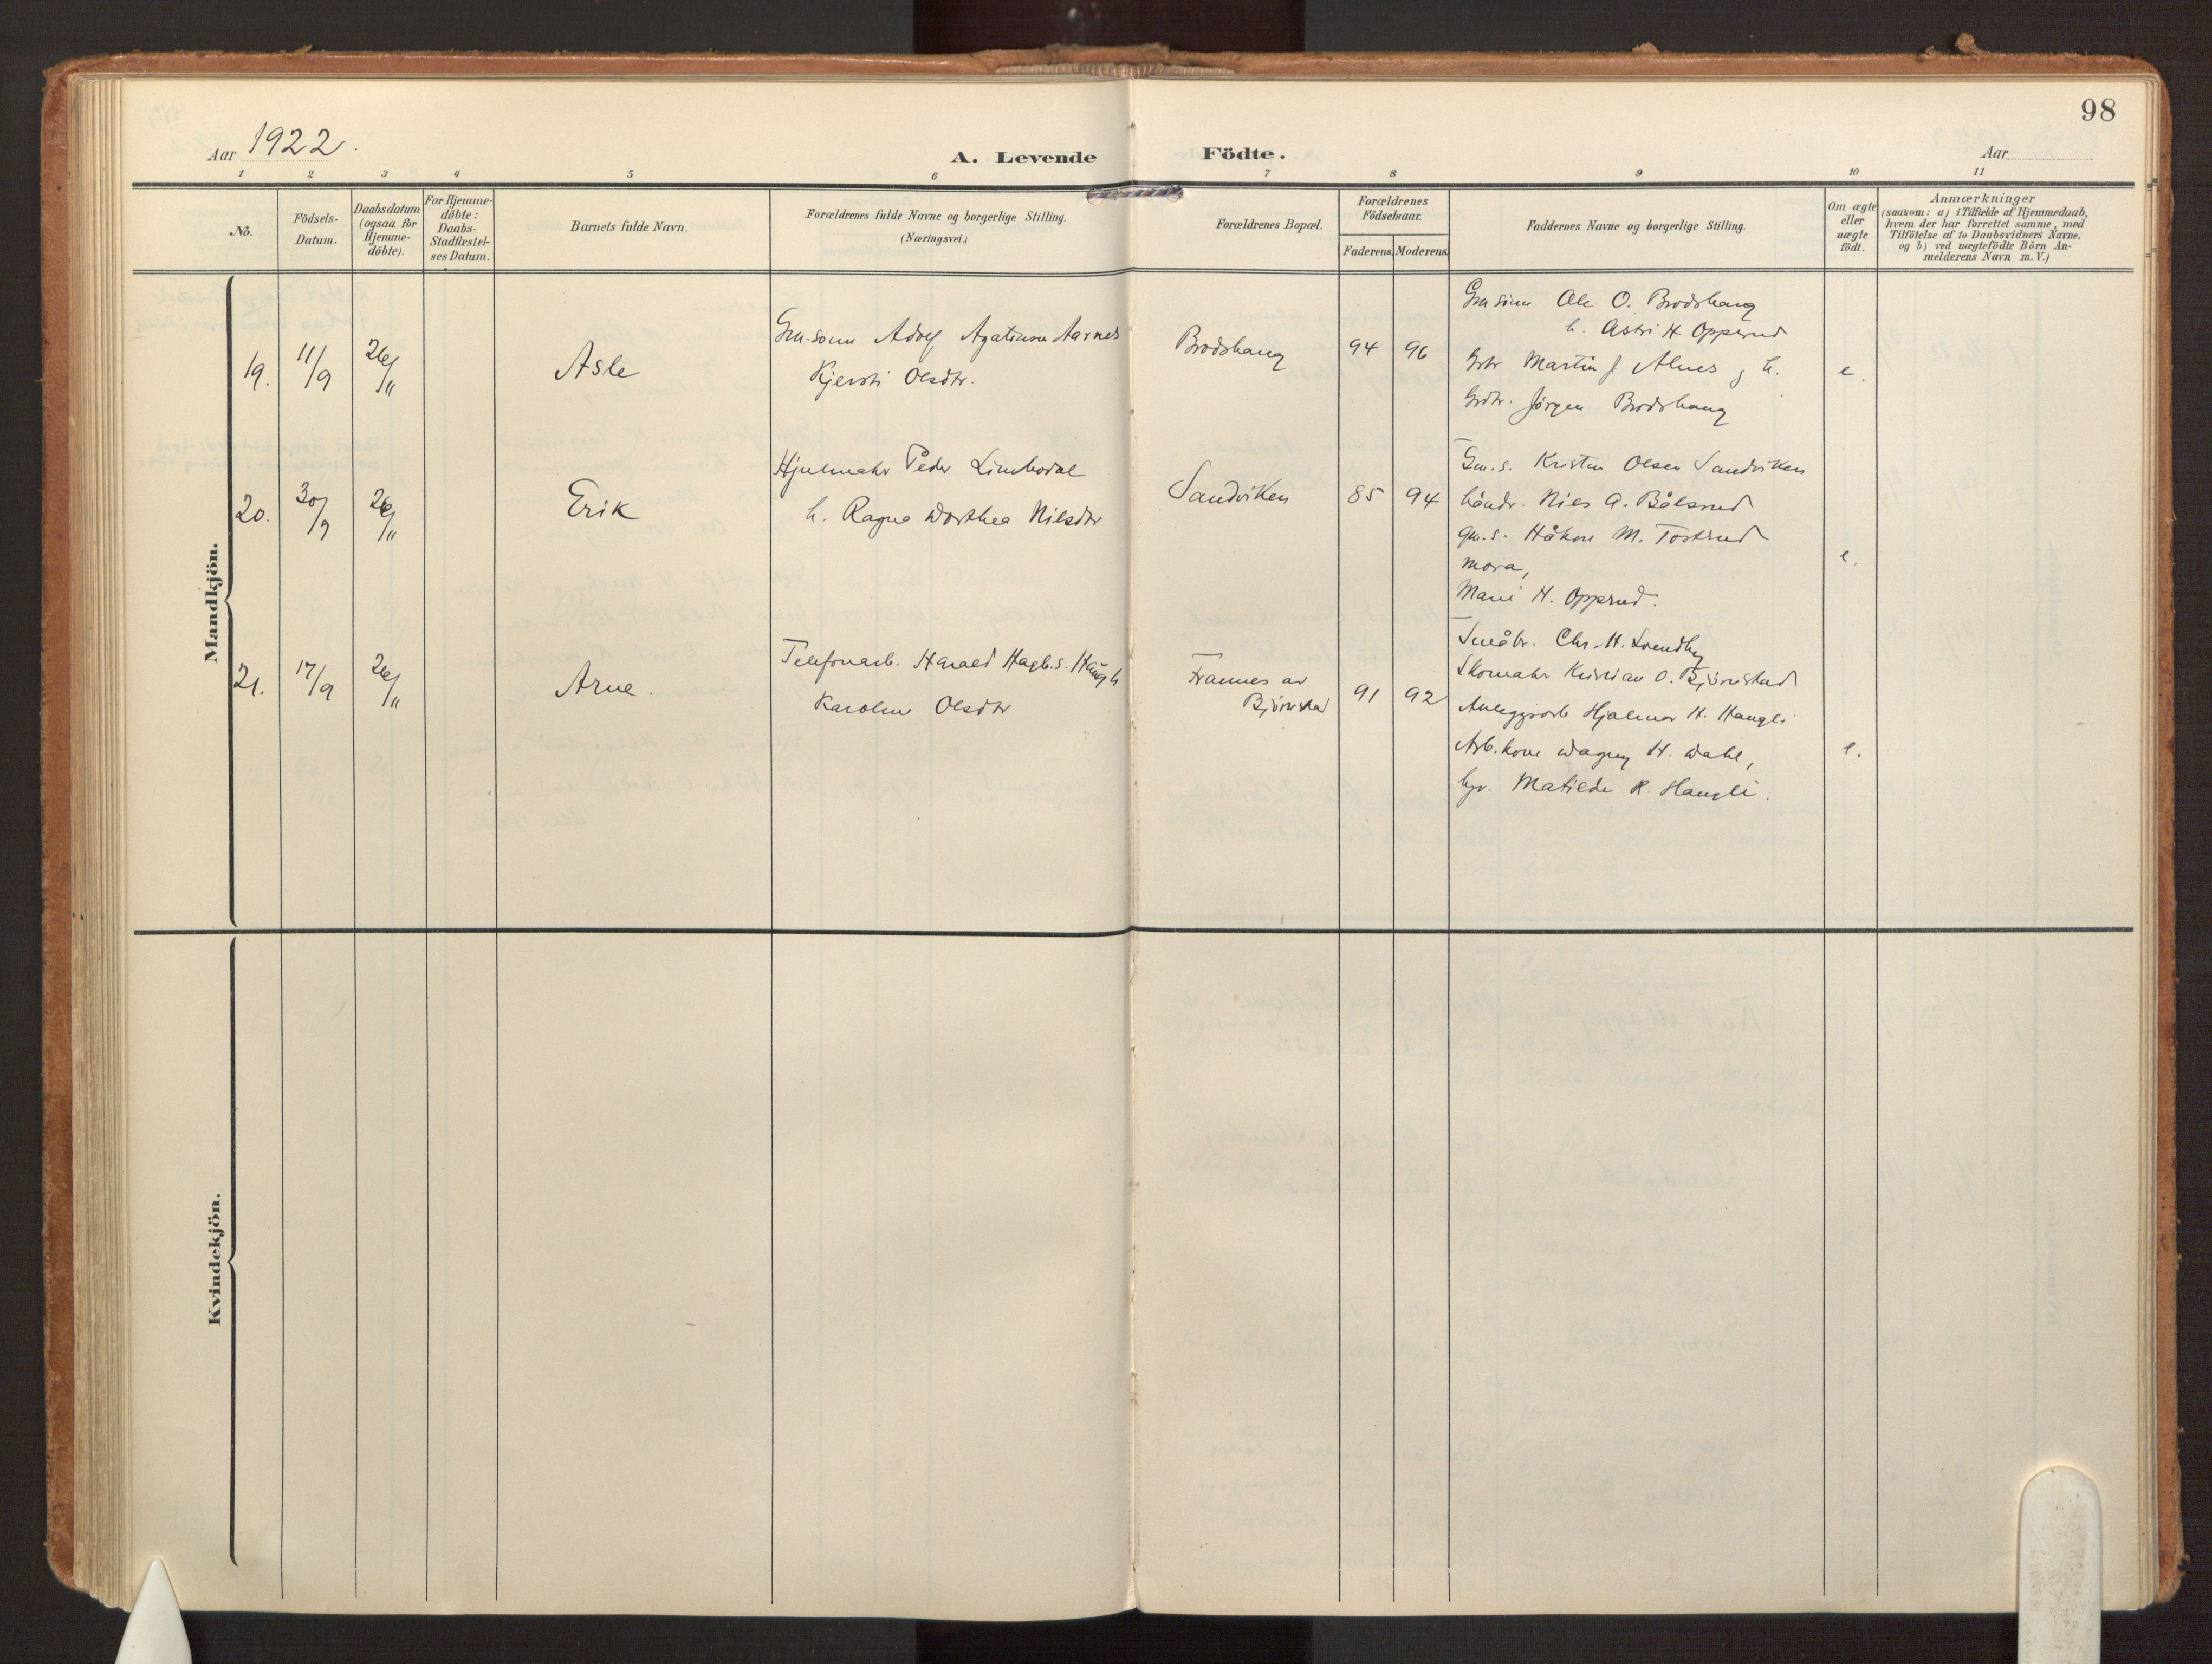 98
Aar 1922.
A. Levende Födte.
Aar
1 2 3 4 5 6 7 8 9 10 11
No.
Födsels-
Datum.
Daabsdatum
(ogsaa for
Hjemme-
döbte).
For Hjemme-
döbte:
Daabs-
Stadfæstel-
ses Datum.
Barnets fulde Navn.
Forældrenes fulde Navne og borgerlige Stilling.
(Næringsvei.)
Forældrenes Bopæl.
Forældrenes
Födselsaar.
Faderens. Moderens.
Faddernes Navne og borgerlige Stilling.
Om ægte
eller
uægte
födt.
Anmærkninger
(saasom: a) i Tilfælde af Hjemmedaab,
hvem der har forrettet samme, med
Tilföielse af to Daabsvidners Navne.
og b) ved uægtefödte Börn An-
melderens Navn m.V.)
Mandkjön.
19. 11/9 26/11 Asle
Gm.sönn Adolf Agatinsen Aarnes
Kjersti Olsdtr.
Brodshaug 94 96
Gm sönn Ole O. Brodshaug
h. Astri H Opperud
Grbr Martin J. Alnes g h.
Grdtr. Jörgen Brodshaug
e.
20. 30/9 26/11 Erik
Hjulmaker Peder Linbodal
h. Ragna Dorthea Nilsdtr
Sandviken 85 94
Gm.s. Kristen Olsen Sandviken
håndv. Niels A. Bålsrud
gm.s. Håkon M. Tostrud
mora,
Marie H. Opperud.
e.
21. 17/9 26/11 Arne.
Telefonarb. Harald Hagb.s. Haugli
Karoline Olsdtr
Frannes av
Björnstad 91 92
Småbr. Chr. H. Svendby
Skomaker Kristian O. Björnstad
Anleggsarb Hjalmar H. Haugli
Arb.kone Dagny H. Dahl,
Matilde H. Haugli.
e.
Kvindekjön.